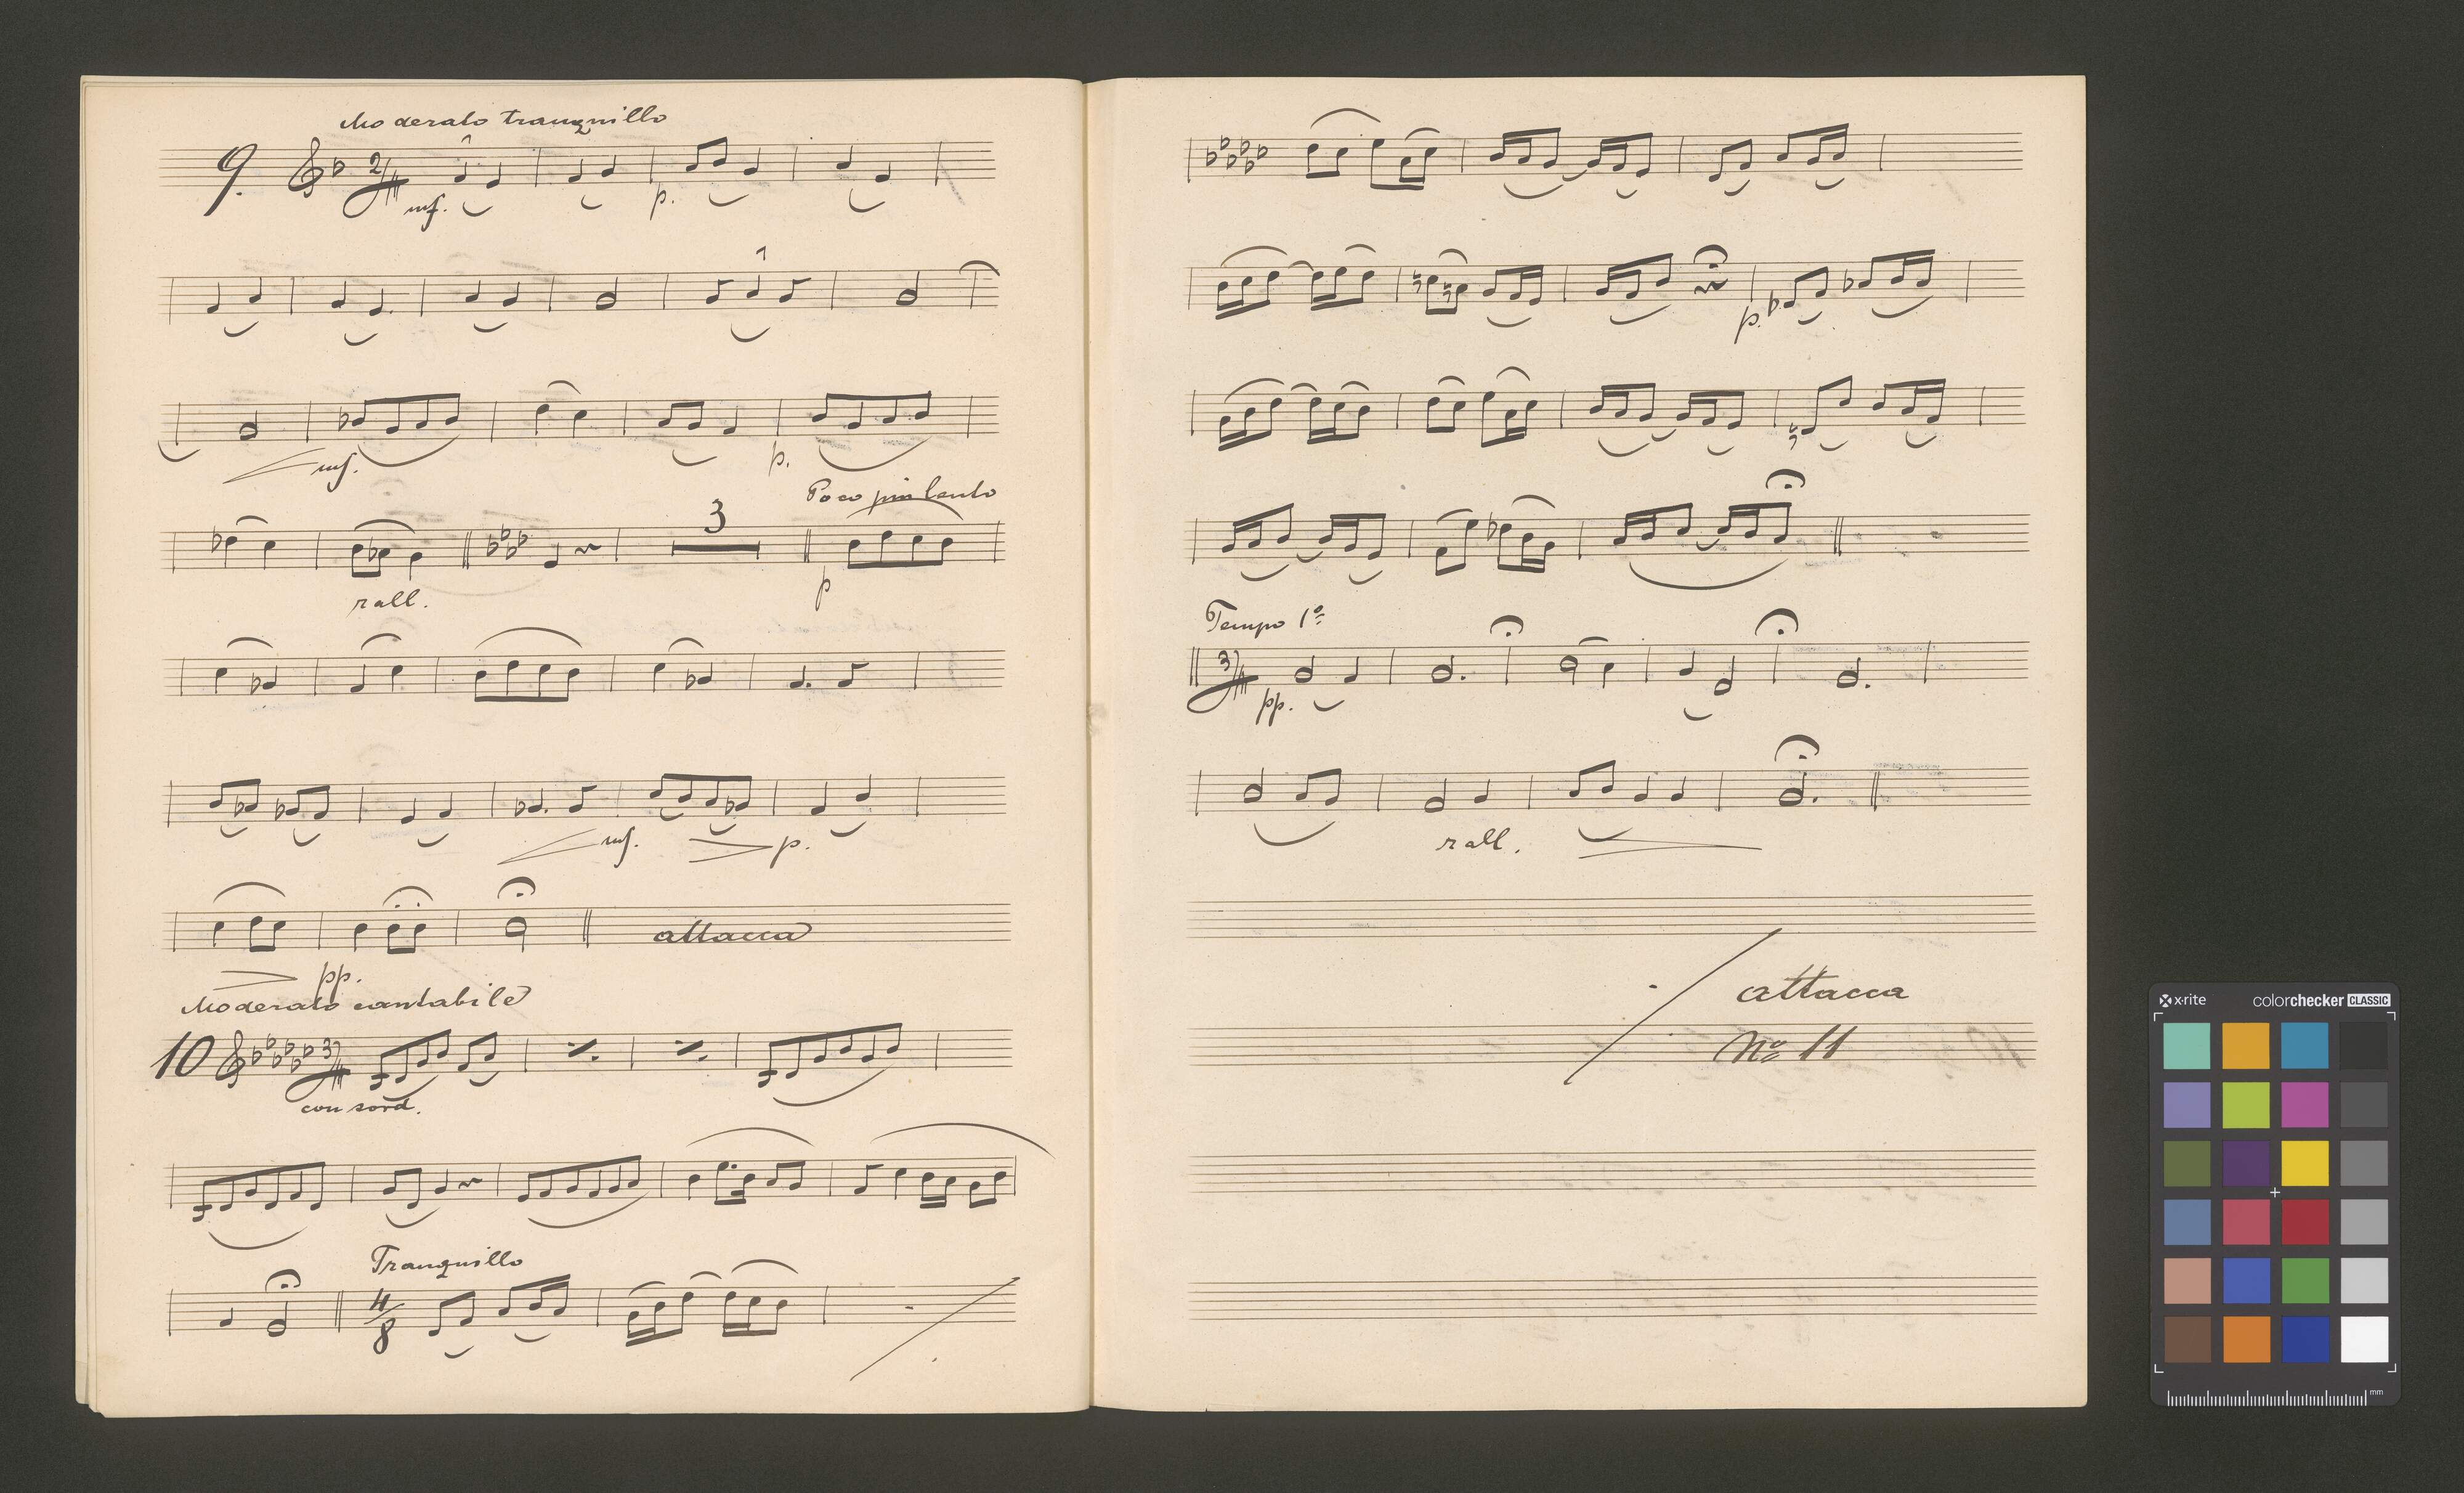 Moderato tranquillo
9.
2/4
mf.
p.
mf.
p.
Poco più lento
3
rall.
p
mf.
p.
attacca
pp.
Moderato cantabile
10
3/4
con sord.
Tranquillo
4/8
p.
Tempo 1º
3/4
pp.
rall.
attacca
Nº 11
x-rite
colorchecker CLASSIC
mm